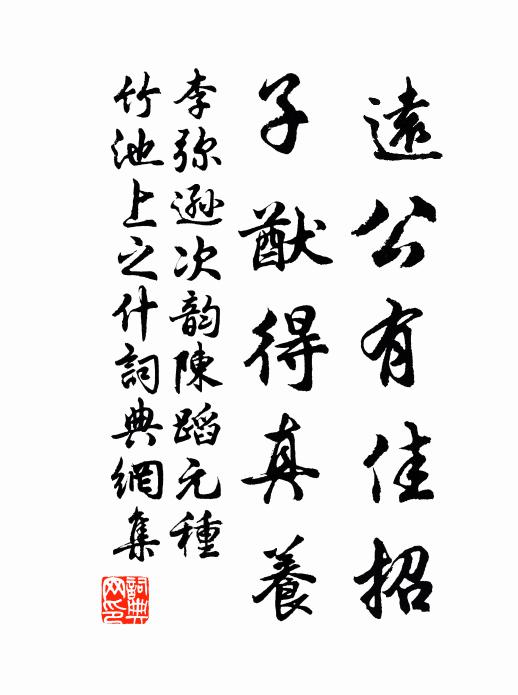 遠公有佳招
子猷得真養
李弥遜次韵陳蹈元種
竹池上之什詞典網集
詞典網印